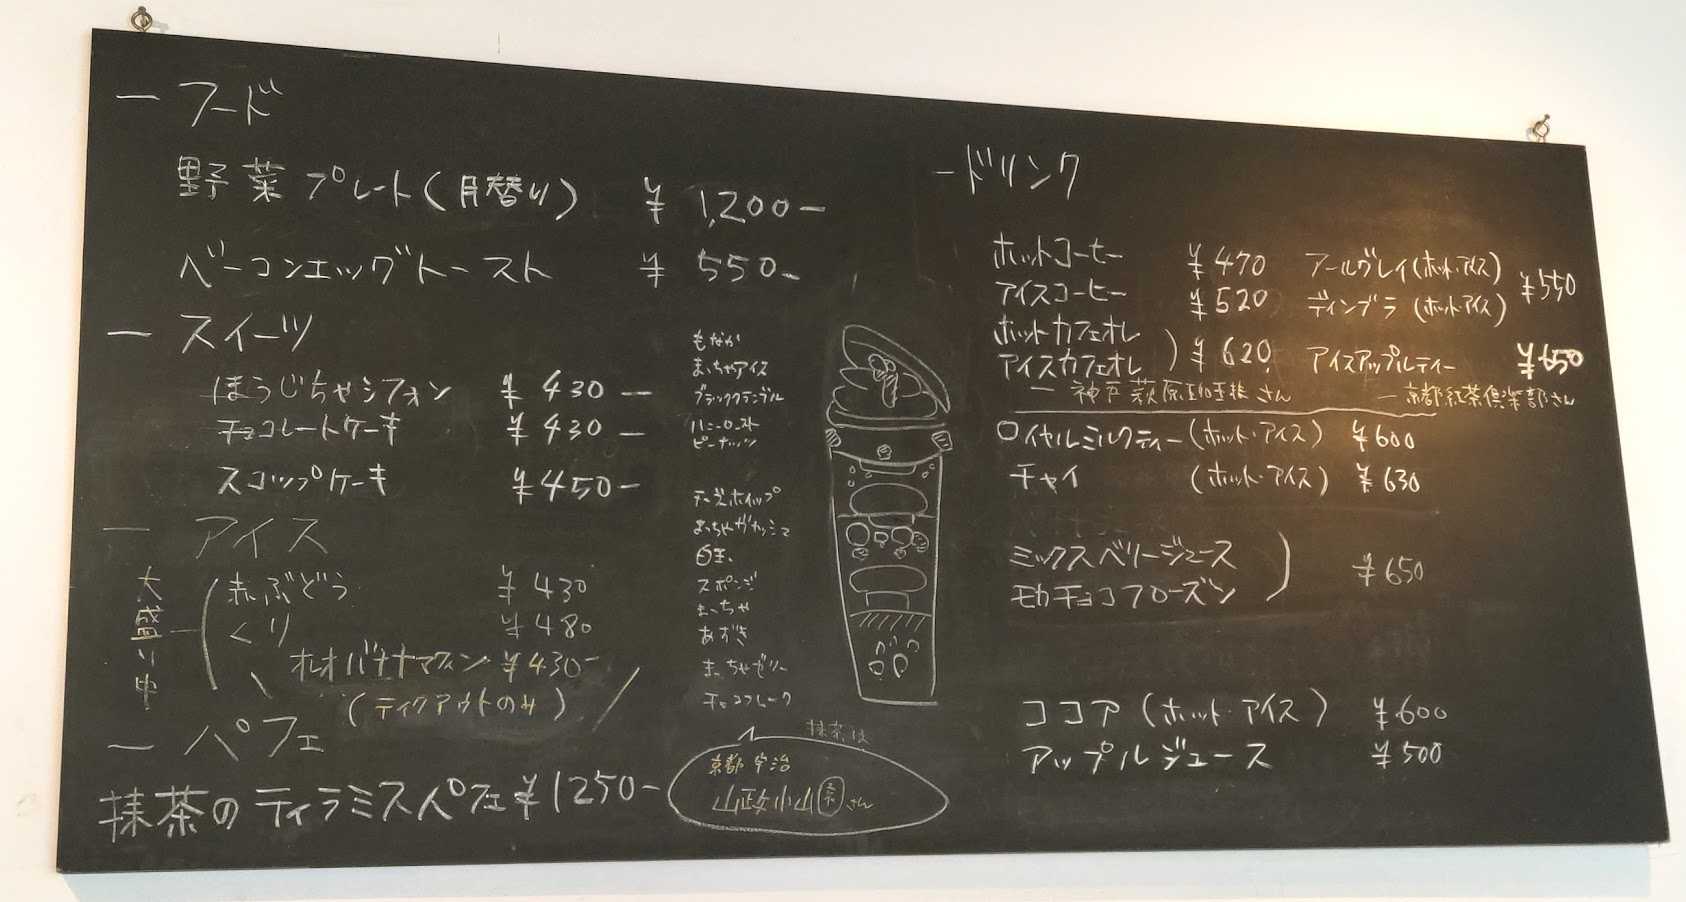 ー フード
野菜プレート(月替り) ¥1,200ー
ベーコンエッグトースト ¥550ー
ー スイーツ
ほうじちゃシフォン ¥430ー
チョコレートケーキ ¥430ー
スコップケーキ ¥450ー
ー アイス
大盛り中
赤ぶどう ¥430
くり ¥480
オレオバナナマフィン ¥430ー
(テイクアウトのみ)
ー パフェ
抹茶のティラミスパフェ ¥1250ー
もなか
まっちゃアイス
ブラッククランブル
ハニーロースト
ピーナッツ
チーズホイップ
まっちゃガナッシュ
白玉
スポンジ
まっちゃ
あずき
まっちゃゼリー
チョコフレーク
抹茶は
京都 宇治
山政小山園さん
ードリンク
ホットコーヒー ¥470
アイスコーヒー ¥520
ホットカフェオレ
アイスカフェオレ ) ¥620
ー 神戸萩原珈琲さん
アールグレイ(ホット・アイス)
ディンブラ(ホット・アイス) ¥550
アイスアップルティー ¥650
ー 京都紅茶倶楽部さん
ロイヤルミルクティー(ホット・アイス) ¥600
チャイ (ホット・アイス) ¥630
ミックスベリージュース
モカチョコフローズン ) ¥650
ココア(ホット・アイス) ¥600
アップルジュース ¥500